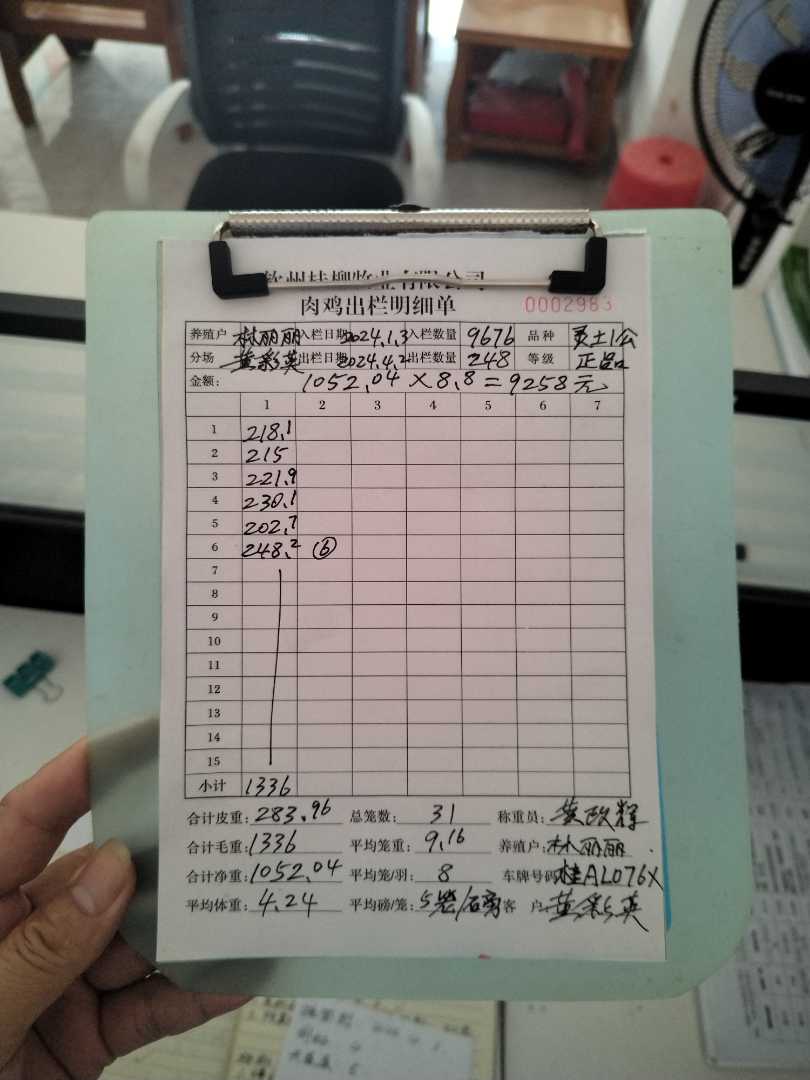 钦州桂柳牧业有限公司
肉鸡出栏明细单 0002983
养殖户 林丽丽 入栏日期 2024.1.3 入栏数量 9676 品种 灵土1公
分场 黄彩英 出栏日期 2024.4.2 出栏数量 248 等级 正品
金额： 1052.04 × 8.8 = 9258元
1 2 3 4 5 6 7
1 218.1
2 215
3 221.9
4 230.1
5 202.7
6 248.2 ⑥
7
8
9
10
11
12
13
14
15
小计 1336
合计皮重：283.96 总笼数：31 称重员：黄政辉
合计毛重：1336 平均笼重：9.16 养殖户：林丽丽
合计净重：1052.04 平均笼/羽：8 车牌号码：桂AL076X
平均体重：4.24 平均磅/笼：5笼/磅 客 户：黄彩英